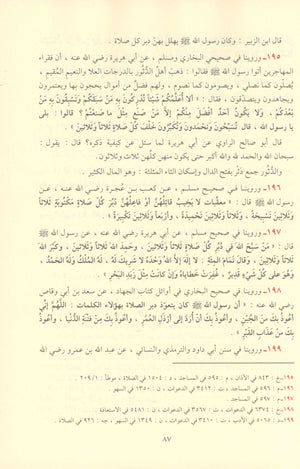 قال ابن الزبير : وكان رسول الله ﷺ يهلل بهنّ دبر كل صلاة .
١٩٥ـ وروينا في صحيحي البخاري ومسلم ، عن أبي هريرة رضي الله عنه ، أن فقراء
المهاجرين أتوا رسول الله ﷺ فقالوا : ذهب أهلُ الدُّثُور بالدرجات العلا والنعيم المُقيم ،
يُصلّون كما نصلي ، ويصومون كما نصوم ، ولهم فضلٌ من أموال يحجون بها ويعتمرون
ويجاهدون ويتصدّقون . فقال : « ألا أُعَلِّمُكُمْ شَيْئاً تُدْرِكُونَ بِهِ مَنْ سَبَقَكُمْ وَتَسْبِقُونَ بِهِ مَنْ
بَعْدَكُمْ ، وَلا يَكُونُ أحَدٌ أفْضَلَ مِنْكُمْ إلاَّ مَنْ صَنَعَ مِثْلَ ما صَنَعْتُمْ ؟ قالوا : بلى
يا رسول الله ، قال : تُسَبِّحُونَ وَتَحْمَدُونَ وَتُكَبِّرُونَ خَلْفَ كُلِّ صَلاةٍ ثَلاثاً وَثَلاثِينَ » .
قال أبو صالح الراوي عن أبي هريرة لما سئل عن كيفية ذكره؟ قال : يقول :
سبحان الله والحمد لله والله أكبر حتى يكون منهن كلّهن ثلاث وثلاثون.
والدُّثُور جمع دَثْر بفتح الدال وإسكان الثاء المثلثة : وهو المال الكثير .
١٩٦ـ وروينا في صحيح مسلم ، عن كعب بن عُجرة رضي الله عنه ، عن
رسول الله ﷺ قال : « مُعقِّباتٌ لا يَخِيبُ قائِلُهُنَّ أوْ فاعِلُهُنَّ دُبُرَ كُلِّ صَلاةٍ مَكْتُوبَةٍ ثَلاثاً
وَثَلاثِينَ تَسْبِيحَةً ، وَثَلاثاً وَثَلاثِينَ تَحْمِيدَةً ، وَأرْبَعاً وَثَلاثِينَ تَكْبِيرَةً » .
١٩٧ـ وروينا في صحيح مسلم ، عن أبي هريرة رضي الله عنه ، عن رسول الله ﷺ
قال : « مَنْ سَبَّحَ اللَّهَ في دُبُرِ كُلِّ صَلاةٍ ثَلاثاً وَثَلاثِينَ ، وَحَمِدَ اللَّهَ ثَلاثاً وَثَلاثِينَ ، وكَبَّرَ اللَّهَ
ثَلاثاً وَثَلاثِينَ ، وَقالَ تَمامَ المِئَةِ : لا إلهَ إلاَّ اللَّهُ وَحْدَهُ لا شَرِيكَ لَهُ ، لَهُ المُلْكُ وَلَهُ الحَمْدُ ،
وَهُوَ على كُلِّ شَيْءٍ قَدِير ، غُفِرَتْ خَطاياهُ وَإنْ كانَتْ مِثْلَ زَبَدِ البَحْرِ » .
١٩٨ـ وروينا في صحيح البخاري في أوائل كتاب الجهاد ، عن سعد بن أبي وقاص
رضي الله عنه : « أن رسول الله ﷺ كان يتعوّذ دبرَ الصلاة بهؤلاء الكلمات : اللَّهُمَّ إنِّي
أعُوذُ بِكَ مِنَ الجُبْنِ ، وَأعُوذُ بِكَ أنْ أُرَدَّ إلى أرْذَلِ العُمُرِ ، وأعُوذُ بِكَ مِنْ فِتْنَةِ الدُّنْيا ، وأعُوذُ
بِكَ مِنْ عَذَابِ القَبْرِ » .
١٩٩ـ وروينا في سنن أبي داود والترمذي والنسائي ، عن عبد الله بن عمرو رضي الله
١٩٥ـ خ : ٨٤٣ في الأذان ، م : ٥٩٥ في المساجد ، د : ١٥٠٤ في الصلاة ، موطأ : ٢٠٩/١ .
١٩٦ـ م : ٥٩٦ في المساجد ، ت : ٣٤١٢ في الدعوات ، ن : ١٣٥٠ في السهو .
١٩٧ـ م : ٥٩٧ في المساجد .
١٩٨ـ خ : ٦٣٧٤ في الدعوات ، ت : ٣٥٦٧ في الدعوات ، ن : ٥٤٨١ في الاستعاذة .
١٩٩ـ د : ٥٠٦٥ في الأدب ، ت : ٣٤١٠ في الدعوات ، ن : ١٣٤٩ في السهو ، جه : ٩٢٦ في الصلاة .
٨٧